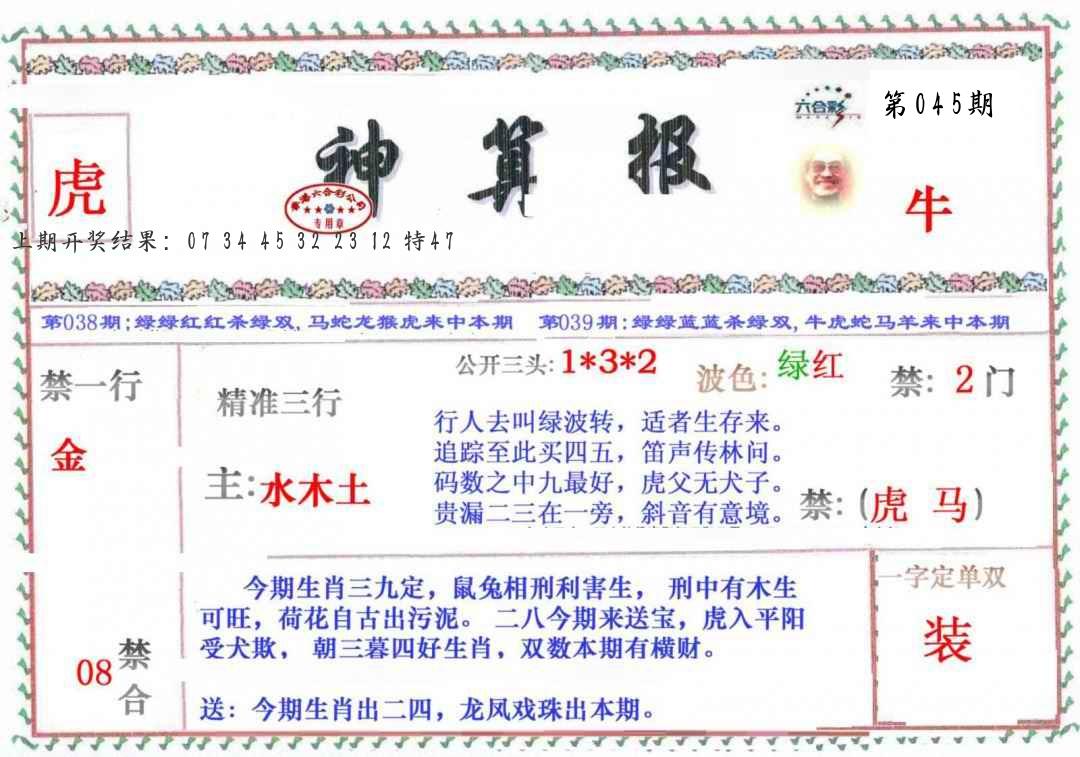 六合彩
第045期
虎
神算报
香港六合彩公司
专用章
牛
上期开奖结果: 07 34 45 32 23 12 特47
第038期:绿绿红红杀绿双,马蛇龙猴虎来中本期 第039期:绿绿蓝蓝杀绿双,牛虎蛇马羊来中本期
公开三头:1*3*2 波色: 绿红 禁: 2门
禁一行
金
精准三行
主:水木土
行人去叫绿波转,适者生存来。
追踪至此买四五,笛声传林问。
码数之中九最好,虎父无犬子。
贵漏二三在一旁,斜音有意境。
禁:(虎 马)
今期生肖三九定,鼠兔相刑利害生, 刑中有木生
可旺,荷花自古出污泥。 二八今期来送宝,虎入平阳
受犬欺, 朝三暮四好生肖,双数本期有横财。
送: 今期生肖出二四,龙凤戏珠出本期。
08禁合
一字定单双
装